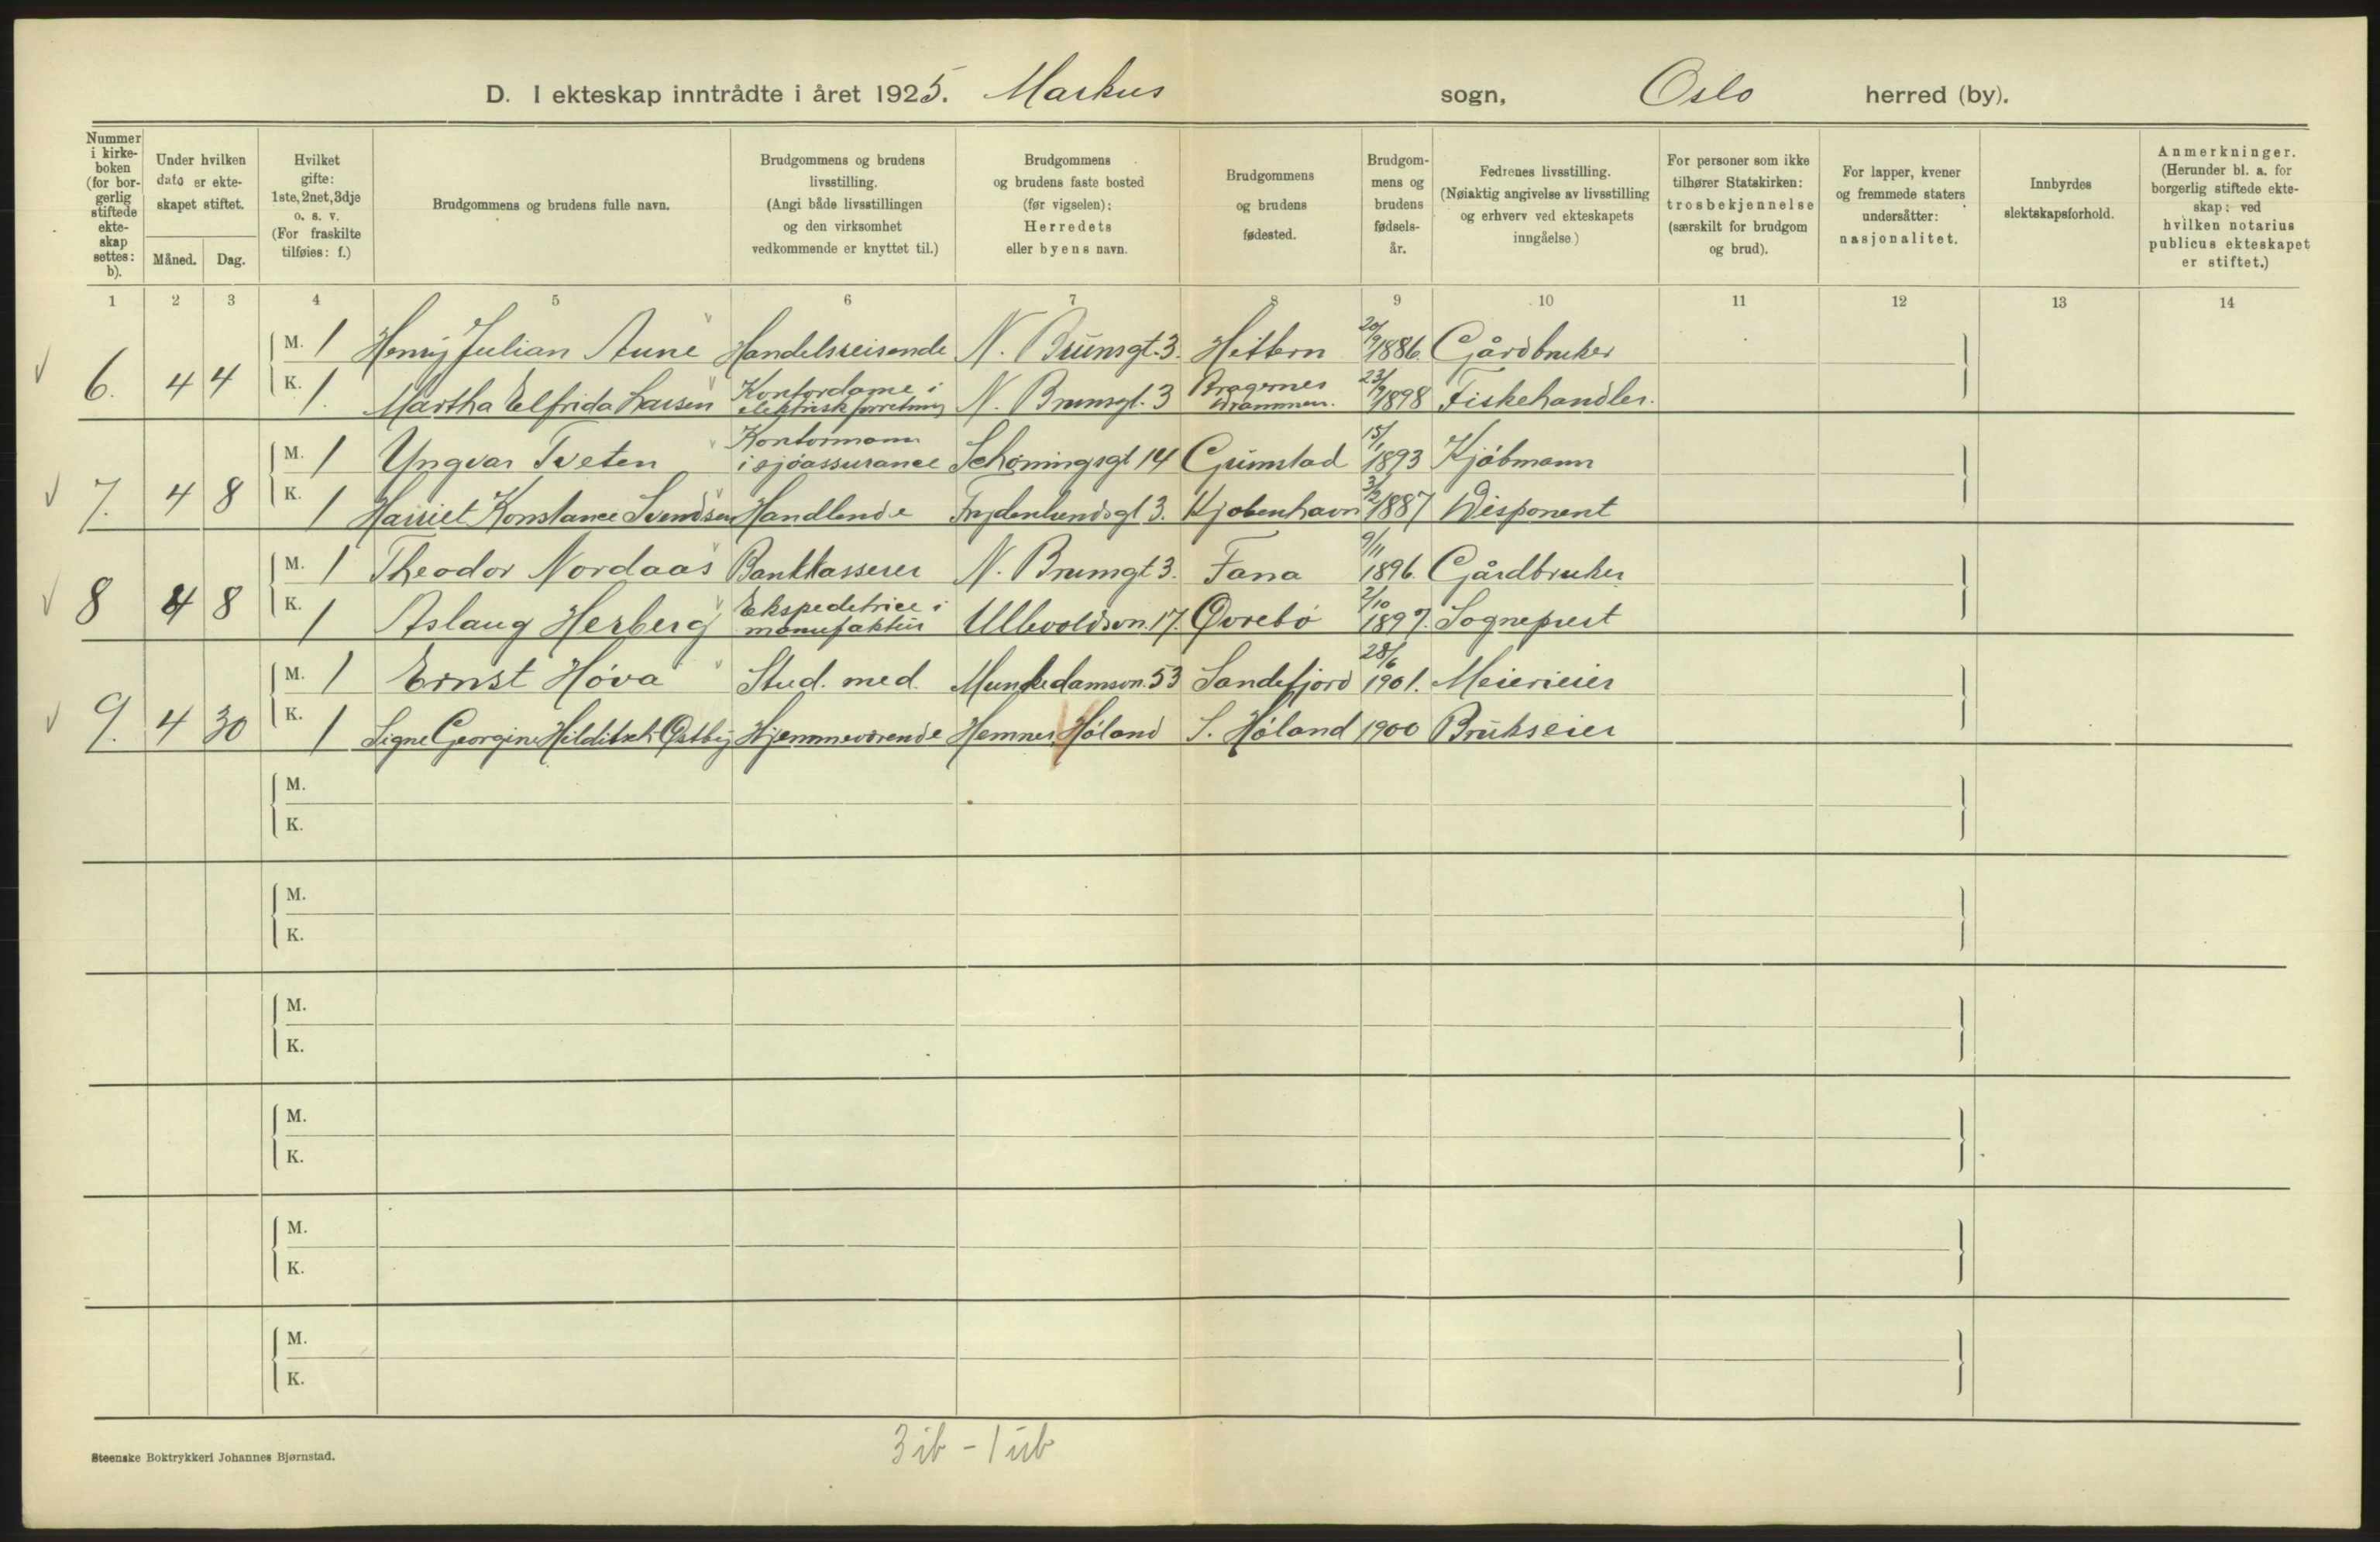 D. I ekteskap inntrådte i året 1925. Markus sogn, Oslo herred (by).
Nummer i kirke- boken (for bor- gerlig stiftede ekte- skap settes: b).
Under hvilken dato er ekte- skapet stiftet.
Måned. Dag.
Hvilket gifte: 1ste, 2net, 3dje o. s. v. (For fraskilte tilføies: f.)
Brudgommens og brudens fulle navn.
Brudgommens og brudens livsstilling. (Angi både livsstillingen og den virksomhet vedkommende er knyttet til.)
Brudgommens og brudens faste bosted (før vigselen): Herredets eller byens navn.
Brudgommens og brudens fødested.
Brudgom- mens og brudens fødsels- år.
Fedrenes livsstilling. (Nøiaktig angivelse av livsstilling og erhverv ved ekteskapets inngåelse)
For personer som ikke tilhører Statskirken: trosbekjennelse (særskilt for brudgom og brud).
For lapper, kvener og fremmede staters undersåtter: nasjonalitet.
Innbyrdes slektskapsforhold.
Anmerkninger. (Herunder bl. a. for borgerlig stiftede ekte- skap: ved hvilken notarius publicus ekteskapet er stiftet.)
1 2 3 4 5 6 7 8 9 10 11 12 13 14
M. 1 Henrij Julian Aune Handelsreisende N. Brunsgt. 3. Hittern 20/9 1886. Gårdbruker
6. 4 4 K. 1. Martha Elfrida Larsen Kontordame i elektrisk forretning N. Brunsgt. 3 Bragernes Drammen. 23/9 1898 Fiskehandler.
M. 1 Yngvar Tveten Kontormann i sjöassurance Schøningsgt 14 Grimstad 15/1 1893 Kjöbmann
7. 4 8 K. 1 Harriet Konstance Svendsen Handlende Frydenlundsgt 3. Kjøbenhavn 3/2 1887 Disponent
M. 1 Theodor Nordaas Bankkasserer N. Brunsgt 3. Fana 9/11 1896. Gårdbruker
8 4 8 K. 1 Aslaug Herberg Ekspeditrice i manufaktur Ullevoldsvn. 17. Øvrebö 2/10 1897. Sogneprest
M. 1 Ernst Höva Stud. med. Munkedamsvn. 53 Sandefjord 28/6 1901. Meierieier
9. 4 30 K. 1 Signe Georgine Hilditsch Østby Hjemmeværende Hemnes, Höland S. Höland 1900 Brukseier
M.
K.
M.
K.
M.
K.
M.
K.
M.
K.
M.
K.
3 ib - 1 ub
Steenske Boktrykkeri Johannes Bjørnstad.